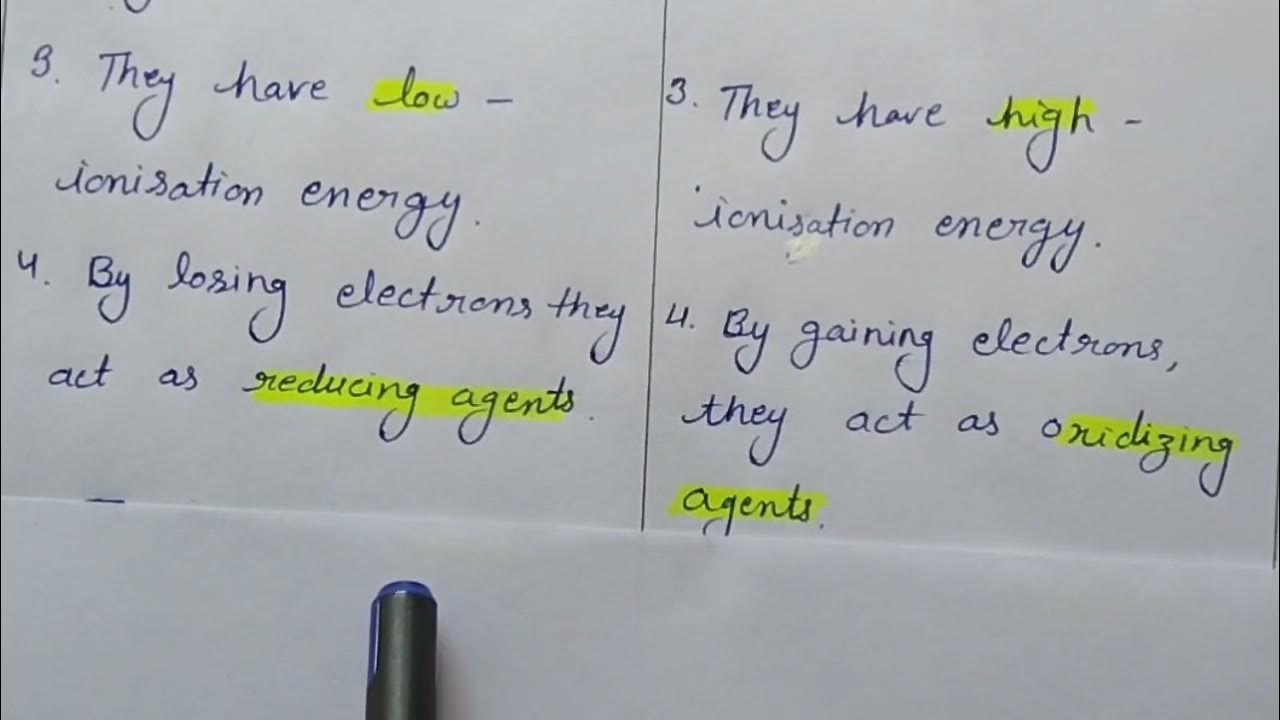 3. They have low -
ionisation energy.
4. By losing electrons they
act as reducing agents.
3. They have high -
ionisation energy.
4. By gaining electrons,
they act as oxidizing
agents.